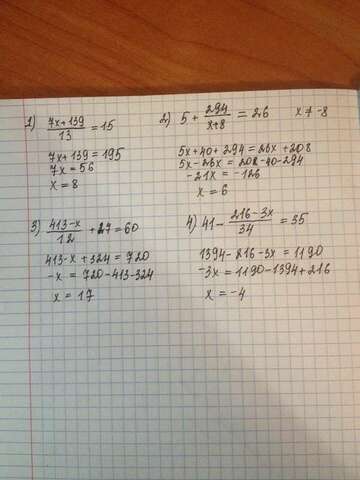 1) (7x+139)/13 = 15
7x+139 = 195
7x = 56
x = 8
2) 5 + 294/(x+8) = 26 x ≠ -8
5x+40+294 = 26x+208
5x-26x = 208-40-294
-21x = -126
x = 6
3) (413-x)/12 + 27 = 60
413-x+324 = 720
-x = 720-413-324
x = 17
4) 41 - (216-3x)/34 = 35
1394-216-3x = 1190
-3x = 1190-1394+216
x = -4